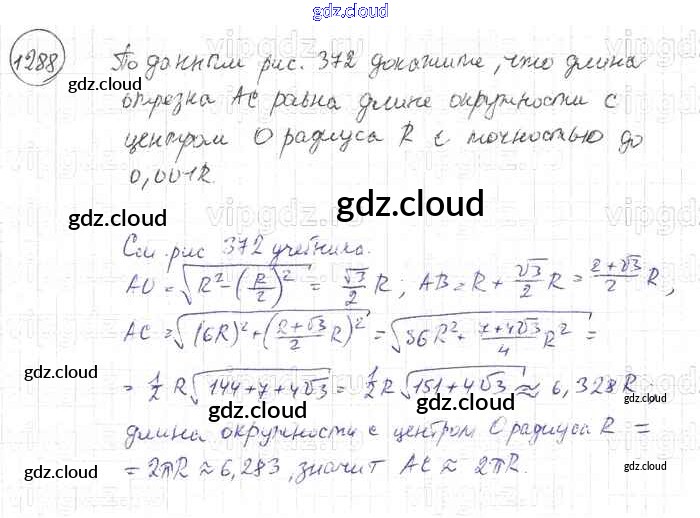 gdz.cloud
1288
По данным рис. 372 докажите, что длина
gdz.cloud
отрезка AC равна длине окружности с
центром O радиуса R с точностью до
gdz.cloud
0,001R.
gdz.cloud
gdz.cloud
См. рис 372 учебника.
AO = √(R² - (R/2)²) = √3/2 R; AB = R + √3/2 R = (2+√3)/2 R,
gdz.cloud
AC = √((6R)² + ((2+√3)/2 R)²) = √(36R² + (7+4√3)/4 R²) =
gdz.cloud
gdz.cloud
= 1/2 R √(144+7+4√3) = 1/2 R √(151+4√3) ≈ 6,328R,
gdz.cloud
gdz.cloud
gdz.cloud
длина окружности с центром O радиуса R =
= 2πR ≈ 6,283, значит AC ≈ 2πR.
gdz.cloud
gdz.cloud
gdz.cloud